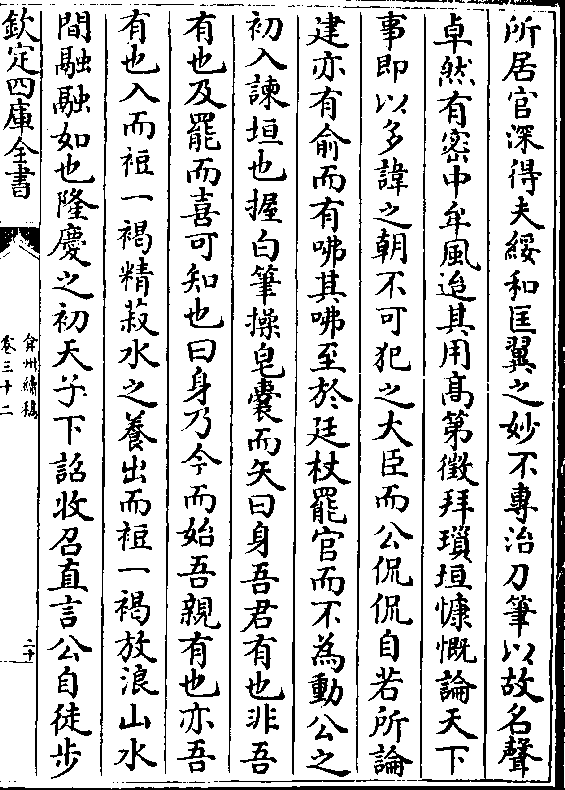 所居官深得夫綏和匡翼之妙不專治刀筆以故名聲
卓然有密中牟風迨其用髙第徵拜瑣垣慷慨論天下
事即以多諱之朝不可犯之大臣而公侃侃自若所論
建亦有俞而有咈其咈至於廷杖罷官而不為動公之
初入諫垣也握白筆操皂囊而矢曰身吾君有也非吾
有也及罷而喜可知也曰身乃今而始吾親有也亦吾
有也入而裋一褐精菽水之養出而裋一褐放浪山水
間融融如也隆慶之初天子下詔收召直言公自徒步
欽定四庫全書
弇州續稿
卷三十二
二十